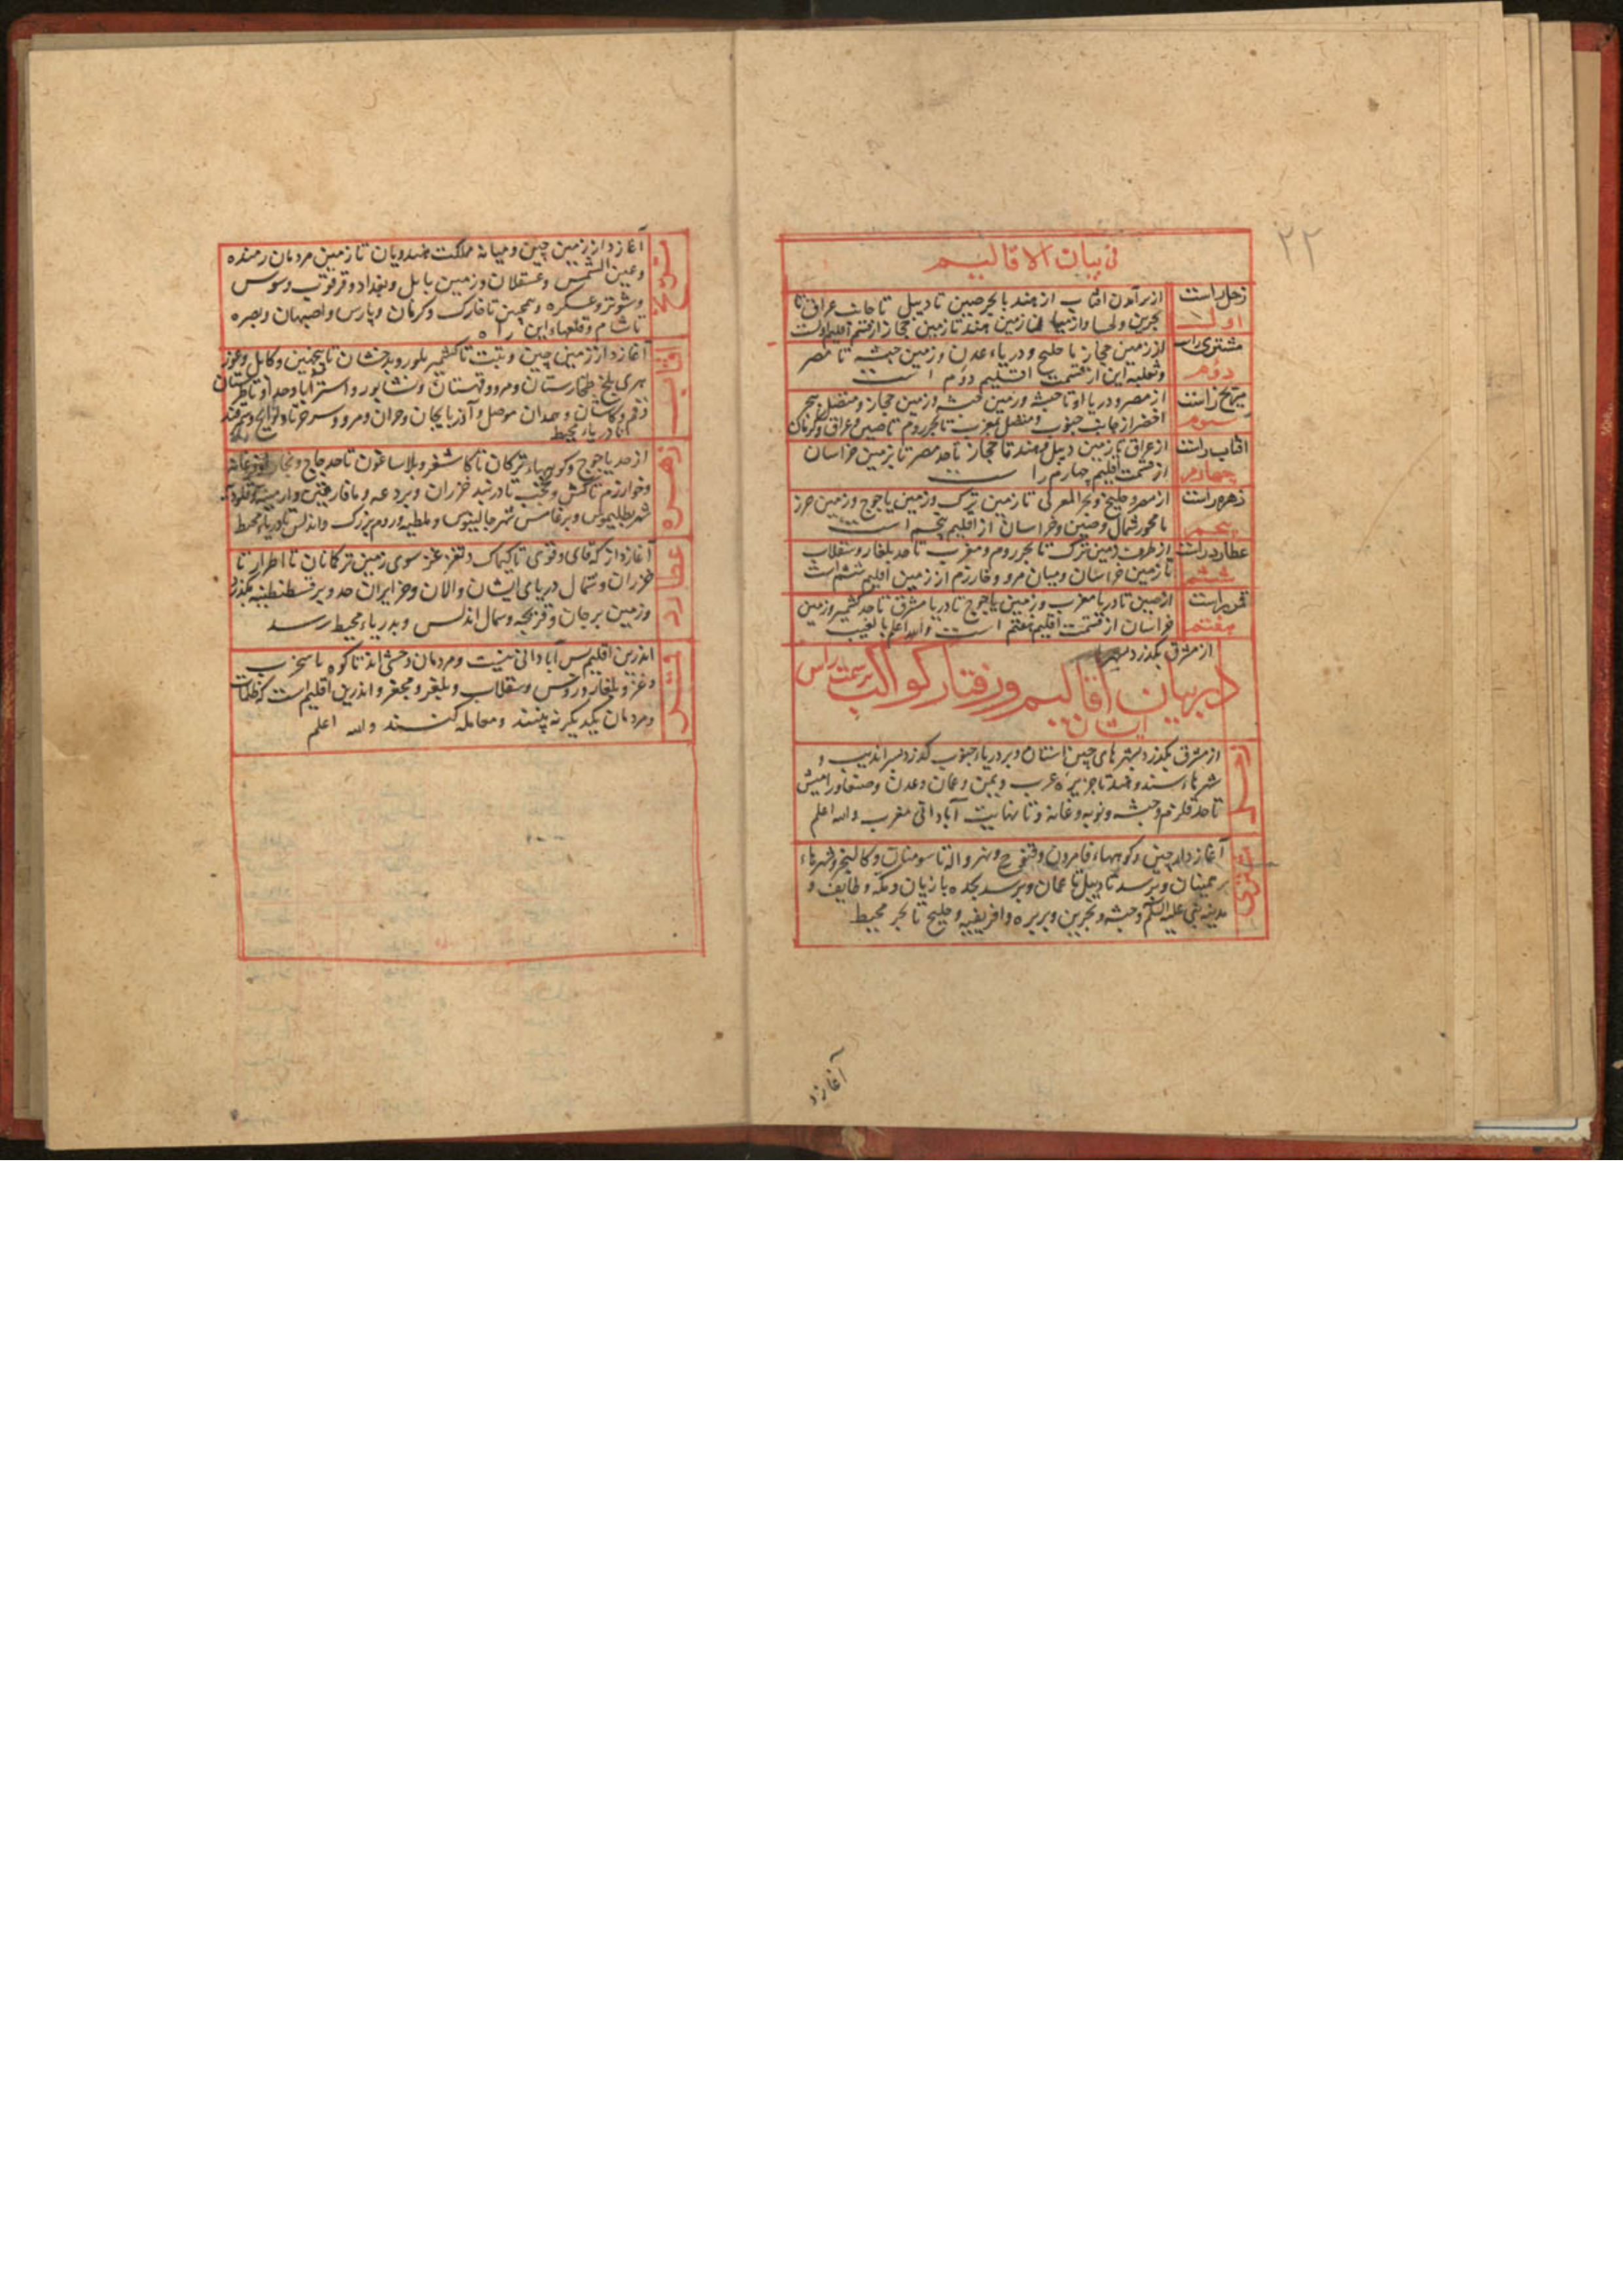 ۲۲
فی بیان الاقالیم
زحل راست
اول
از برآمدن افتاب از هند با بحر صین تا دیبل تا جانب عراق تا
بحرین و از میا زمین هند تا زمین حجاز از قسم اقلیم اولست
مشتری راست
دوم
از زمین حجاز با خلیج و دریاء عدن و زمین حبشه تا مصر
و این از قسمت اقلیم دوم است
مریخ راست
سوم
از مصر و دریا او تا حبشه و زمین حبشه و زمین حجاز و متصل ببحر
اخضر از جانب جنوب و متصل بمغرب تا بحر روم تا صین و عراق و کرمان
افتاب راست
چهارم
از عراق تا زمین دیبل و هند تا حجاز تا حد مصر تا بزمین خراسان
از قسمت اقلیم چهارم را ست
زهره راست
پنجم
از مصر و خلیج و بحر تا زمین ترک و زمین یاجوج و زمین خزر
با محور شمال و صین و خراسان از اقلیم پنجم است
عطارد راست
ششم
از طرف زمین ترک تا بحر روم و مغرب تا حد بلغار و سقلاب
تا زمین خراسان و میان مرو و خارزم از زمین اقلیم ششم است
قمر راست
هفتم
از صین تا دریا مغرب و زمین یاجوج تا دریا مشرق تا حد کشمیر و زمین
خراسان از قسمت اقلیم هفتم است والله اعلم بالغیب
از مشرق بگذرد بشهرها
در بیان اقالیم و رفتار کواکب بر سمت راس
ایشان
زحل
از مشرق بگذرد بشهرهای چین تاستان و بر دریاء جنوب گذرد بسراندیب و
شهرهاء سند و هند تا جزیره عرب و یمن و عمان و عدن و صنعا
تا حد قلزم و حبشه و نوبه و غانه و تا نهایت آبادانی مغرب والله اعلم
مشتری
آغازد از چین و کوههاء قامرون و قنوج و نهرواله تا سومنات و کالنجر و شهرهاء
برهمنان و برسد تا دیبل تا عمان و برسد بجده با زیان و مکه و طایف و
مدینه نبی علیه السلام و حبشه و بحرین و بربره و افریقیه و خلیج تا بحر محیط
آغازد
مریخ
آغازد از زمین چین و میانه مملکت هندویان تا زمین مردمان رمنده
و عین الشمس و عسقلان و زمین بابل و بغداد و قرقوب و سوس
و شوشتر و عسکره و همچنین تا خارک و کرمان و پارس و اصبهان و بصره
تا شام و قلعهاء این راه
افتاب
آغازد از زمین چین و تبت تا کشمیر بلور و بدخشان تا و کابل و غور
هری بلخ طخارستان و مرو و قهستان و نشابور و استراباد و حد او تا طبرستان
و قم و کاشان و همدان موصل و آذربایجان و حران و مرو و سرخ تا و
تا دریاء محیط
زهره
از حد یاجوج و کوههاء ترکان تا کاشغر و بلاساغون تا حد چاچ و
و خوارزم تا کش و نخشب تا دربند خزران و بردعه و مافارقین و ارمینیه
شهر بطلیموس و برغامس شهر جالینوس و ملطیه و روم بزرگ و اندلس تا دریاء محیط
عطارد
آغازد از که قای و قوی تا کیماک و تغزغز سوی زمین ترکانان تا اطرار تا
خزران و شمال دریای ایشان و الان و جزایران حد و بر قسطنطینیه بگذرد
و زمین برجان و فرنجه و شمال اندلس و بدریاء محیط رسد
قمر
اندرین اقلیم بس آبادانی نیست و مردمان وحشی اند تا کوه باسخرب
و غز و بلغار و روس و سقلاب و بلغر و مجغر و اندرین اقلیم است که ظلمات
و مردمان یکدیگر نه بینند و معامله کنند والله اعلم